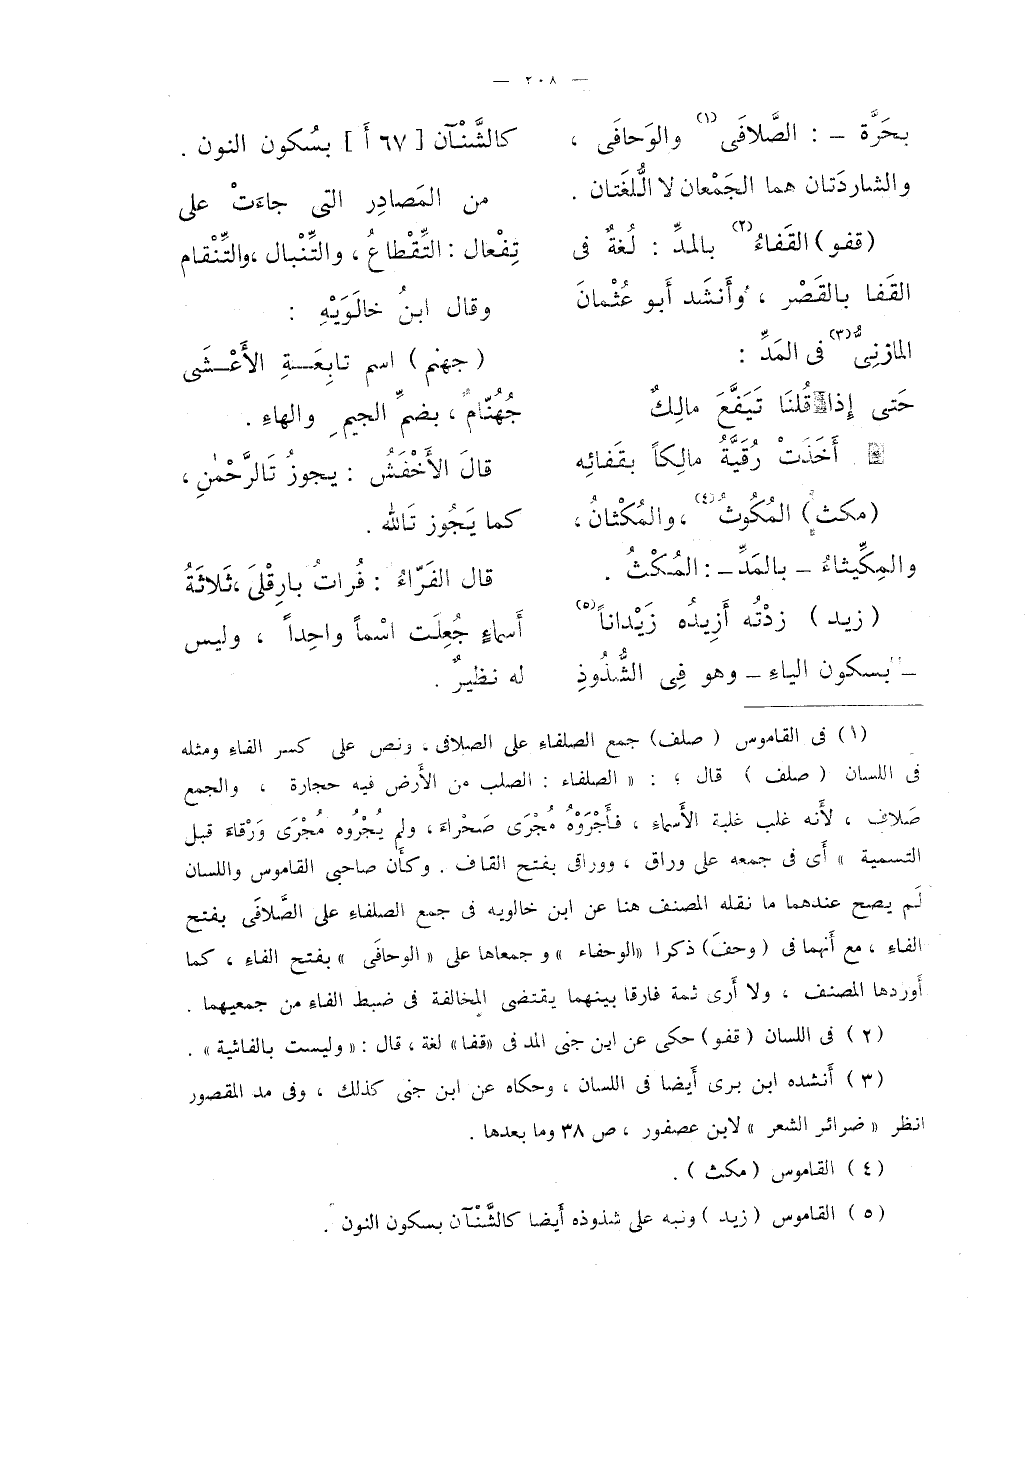 — ٢٠٨ —
بحَرَّة – : الصَّلافَى (١) والوَحافَى ،
والشاردَتان هما الجَمْعان لا اللُّغَتان .
(قفو) القَفاءُ (٢) بالمدِّ : لُغةٌ فى
القَفا بالقَصْر ، وأَنشَد أَبو عُثْمانَ
المازنِىُّ (٣) فى المَدِّ :
حَتى إِذا قُلنَا تَيَفَّعَ مالِكٌ
أَخَذَتْ رُقَيَّةُ مالِكاً بقَفائِه
(مكث) المُكُوثُ (٤) ، والمُكْثانُ ،
والمِكِّيثاءُ – بالمَدِّ – : المُكْثُ .
(زيد) زدْتُه أَزِيدُه زَيْداناً (٥)
– بسكون الياءِ – وهو فِى الشُّذُوذِ
كالشَّنْآن [ ٦٧ أ ] بسُكون النون .
من المَصادِر التى جاءَتْ على
تِفْعال : التِّقْطاعُ ، والتِّنْبال ، والتِّنْقام
وقال ابنُ خالَوَيْهِ :
(جهنم) اسم تابِعَةِ الأَعْشَى
جُهُنّامٌ ، بضمِّ الجيمِ والهاءِ .
قالَ الأَخْفَشُ : يجوزُ تَالرَّحْمٰنِ ،
كما يَجُوز تَالله .
قال الفَرّاءُ : فُراتُ بارِقْلَى ، ثَلاثَةُ
أَسماءٍ جُعِلَت اسْماً واحِداً ، وليس
له نظيرٌ .
(١) فى القاموس ( صلف ) جمع الصلفاء على الصلافى ، ونص على كسر الفاء ومثله
فى اللسان ( صلف ) قال ؛ : « الصلفاء : الصلب من الأَرض فيه حجارة ، والجمع
صَلاف ، لأَنه غلب غلبة الأَسماءِ ، فأَجْرَوْهُ مُجْرَى صَحْراءَ ، ولم يُجْرُوه مُجْرَى وَرْقاءَ قبل
التسمية » أَى فى جمعه على وراق ، ووراقى بفتح القاف . وكأَن صاحبى القاموس واللسان
لَم يصح عندهما ما نقله المصنف هنا عن ابن خالويه فى جمع الصلفاء على الصَّلافَى بفتح
الفاءِ ، مع أَنهما فى ( وحفَ ) ذكرا «الوحفاء » و جمعاها على « الوحافَى » بفتح الفاءِ ، كما
أَوردها المصنف ، ولا أَرى ثمة فارقا بينهما يقتضى المخالفة فى ضبط الفاءِ من جمعيهما .
(٢) فى اللسان ( قفو ) حكى عن ابن جنى المد فى «قفا» لغة ، قال : « وليست بالفاشية » .
(٣) أَنشده ابن برى أَيضا فى اللسان ، وحكاه عن ابن جنى كذلك ، وفى مد المقصور
انظر « ضرائر الشعر » لابن عصفور ، ص ٣٨ وما بعدها .
(٤) القاموس ( مكث ) .
(٥) القاموس ( زيد ) ونبه على شذوذه أَيضا كالشَّنْآن بسكون النون .